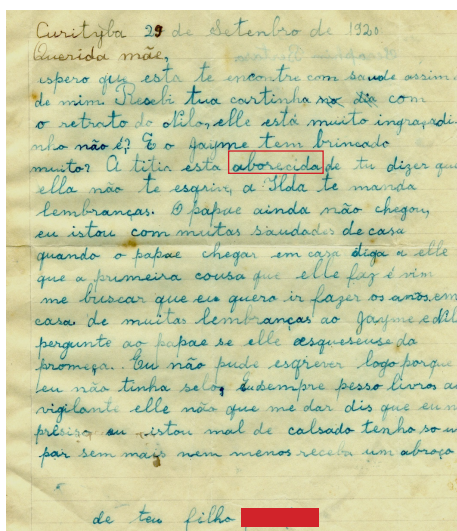 Curityba 29 de Setenbro de 1920
Querida mãe,
ispero que esta te encontre com saude assim
de mim Resebi tua cartinha no dia com
o retrato do Nilo, elle está muito ingraçadi
nho não é? E o Jayme tem brincado
muito? A titia esta aborecida de tu dizer que
ella não te esgrive, a Ilda te manda
lembranças. O papae ainda não chegou,
eu istou com muitas saudades de casa
quando o papae chegar em casa diga a elle
que a primeira cousa que elle faz é vim
me buscar que eu quero ir fazer os anos em
casa de muitas lembranças ao Jayme e
pergunte ao papae se elle esqueseuse da
promeça. Eu não pude esgrever logo porque
eu não tinha selo, sempre pesso livros ao
vigilante elle não que me dar dis que eu n
presiso eu istou mal de calsado tenho so u
par sem mais nem menos receba um abraço
de teu filho